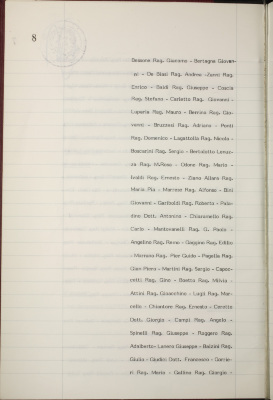 8
Bessone Rag. Giacomo - Bertagna Giovan-
ni - De Blasi Rag. Andrea - Zunni Rag.
Enrico - Gaidi Rag. Giuseppe - Coscia
Rag. Stefano - Carletto Rag. Giovanni -
Luparia Rag. Mauro - Bernini Rag. Gio-
vanni - Bruzzesi Rag. Adriano - Ponti
Rag. Domenico - Lagattolla Rag. Nicola -
Boscarini Rag. Sergio - Bertolotto Loren-
za Rag. M.Rosa - Odone Rag. Mario -
Ivaldi Rag. Ernesto - Ziano Allara Rag.
Maria Pia - Marinese Rag. Alfonso - Bisi
Giovanni - Gariboldi Rag. Roberto - Pala-
dino Dott. Antonino - Chiaramello Rag.
Carlo - Mantovanelli Rag. G. Paolo -
Angelino Rag. Remo - Gaggino Rag. Edilio
- Morrone Rag. Pier Guido - Pagella Rag.
Gian Piero - Martini Rag. Sergio - Capoc-
ritti Rag. Gino - Biastra Rag. Milvia -
Artini Rag. Gioacchino - Luigi Rag. Mar-
cello - Chiantore Rag. Ernesto - Caretta
Dott. Giorgio - Campi Rag. Angelo -
Spinelli Rag. Giuseppe - Ruggero Rag.
Adalberto - Lunero Giuseppe - Balzini Rag.
Giulia - Giudici Dott. Francesco - Garrie-
ri Rag. Mario - Gallina Rag. Giorgio -